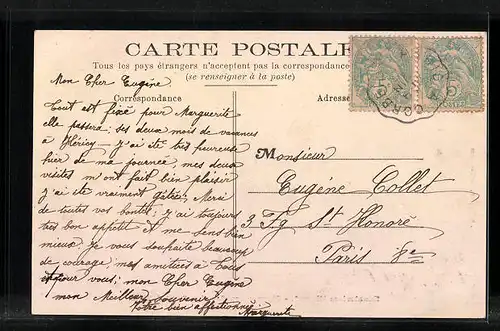 CARTE POSTALE
Tous les pays étrangers n'acceptent pas la correspondance
(se renseigner à la poste)
Correspondance
Adresse
Mon Cher Eugène
Tout est fixé pour Marguerite
elle passera ses deux mois de vacances
à Héricy — j'ai été très heureuse
hier de ma journée, mes deux
visites m'ont fait bien plaisir
j'ai été vraiment gâtée, Merci
de toutes vos bontés, j'ai toujours
très bon appetit et me sens bien
mieux, je vous souhaite beaucoup
de courage, mes amitiés à Tous
et pour vous, mon Cher Eugène
mon Meilleur Souvenir.
Votre bien affectionnée
Marguerite
Monsieur
Eugène Collet
3 Fg St Honoré
Paris 8e
CORBEIL